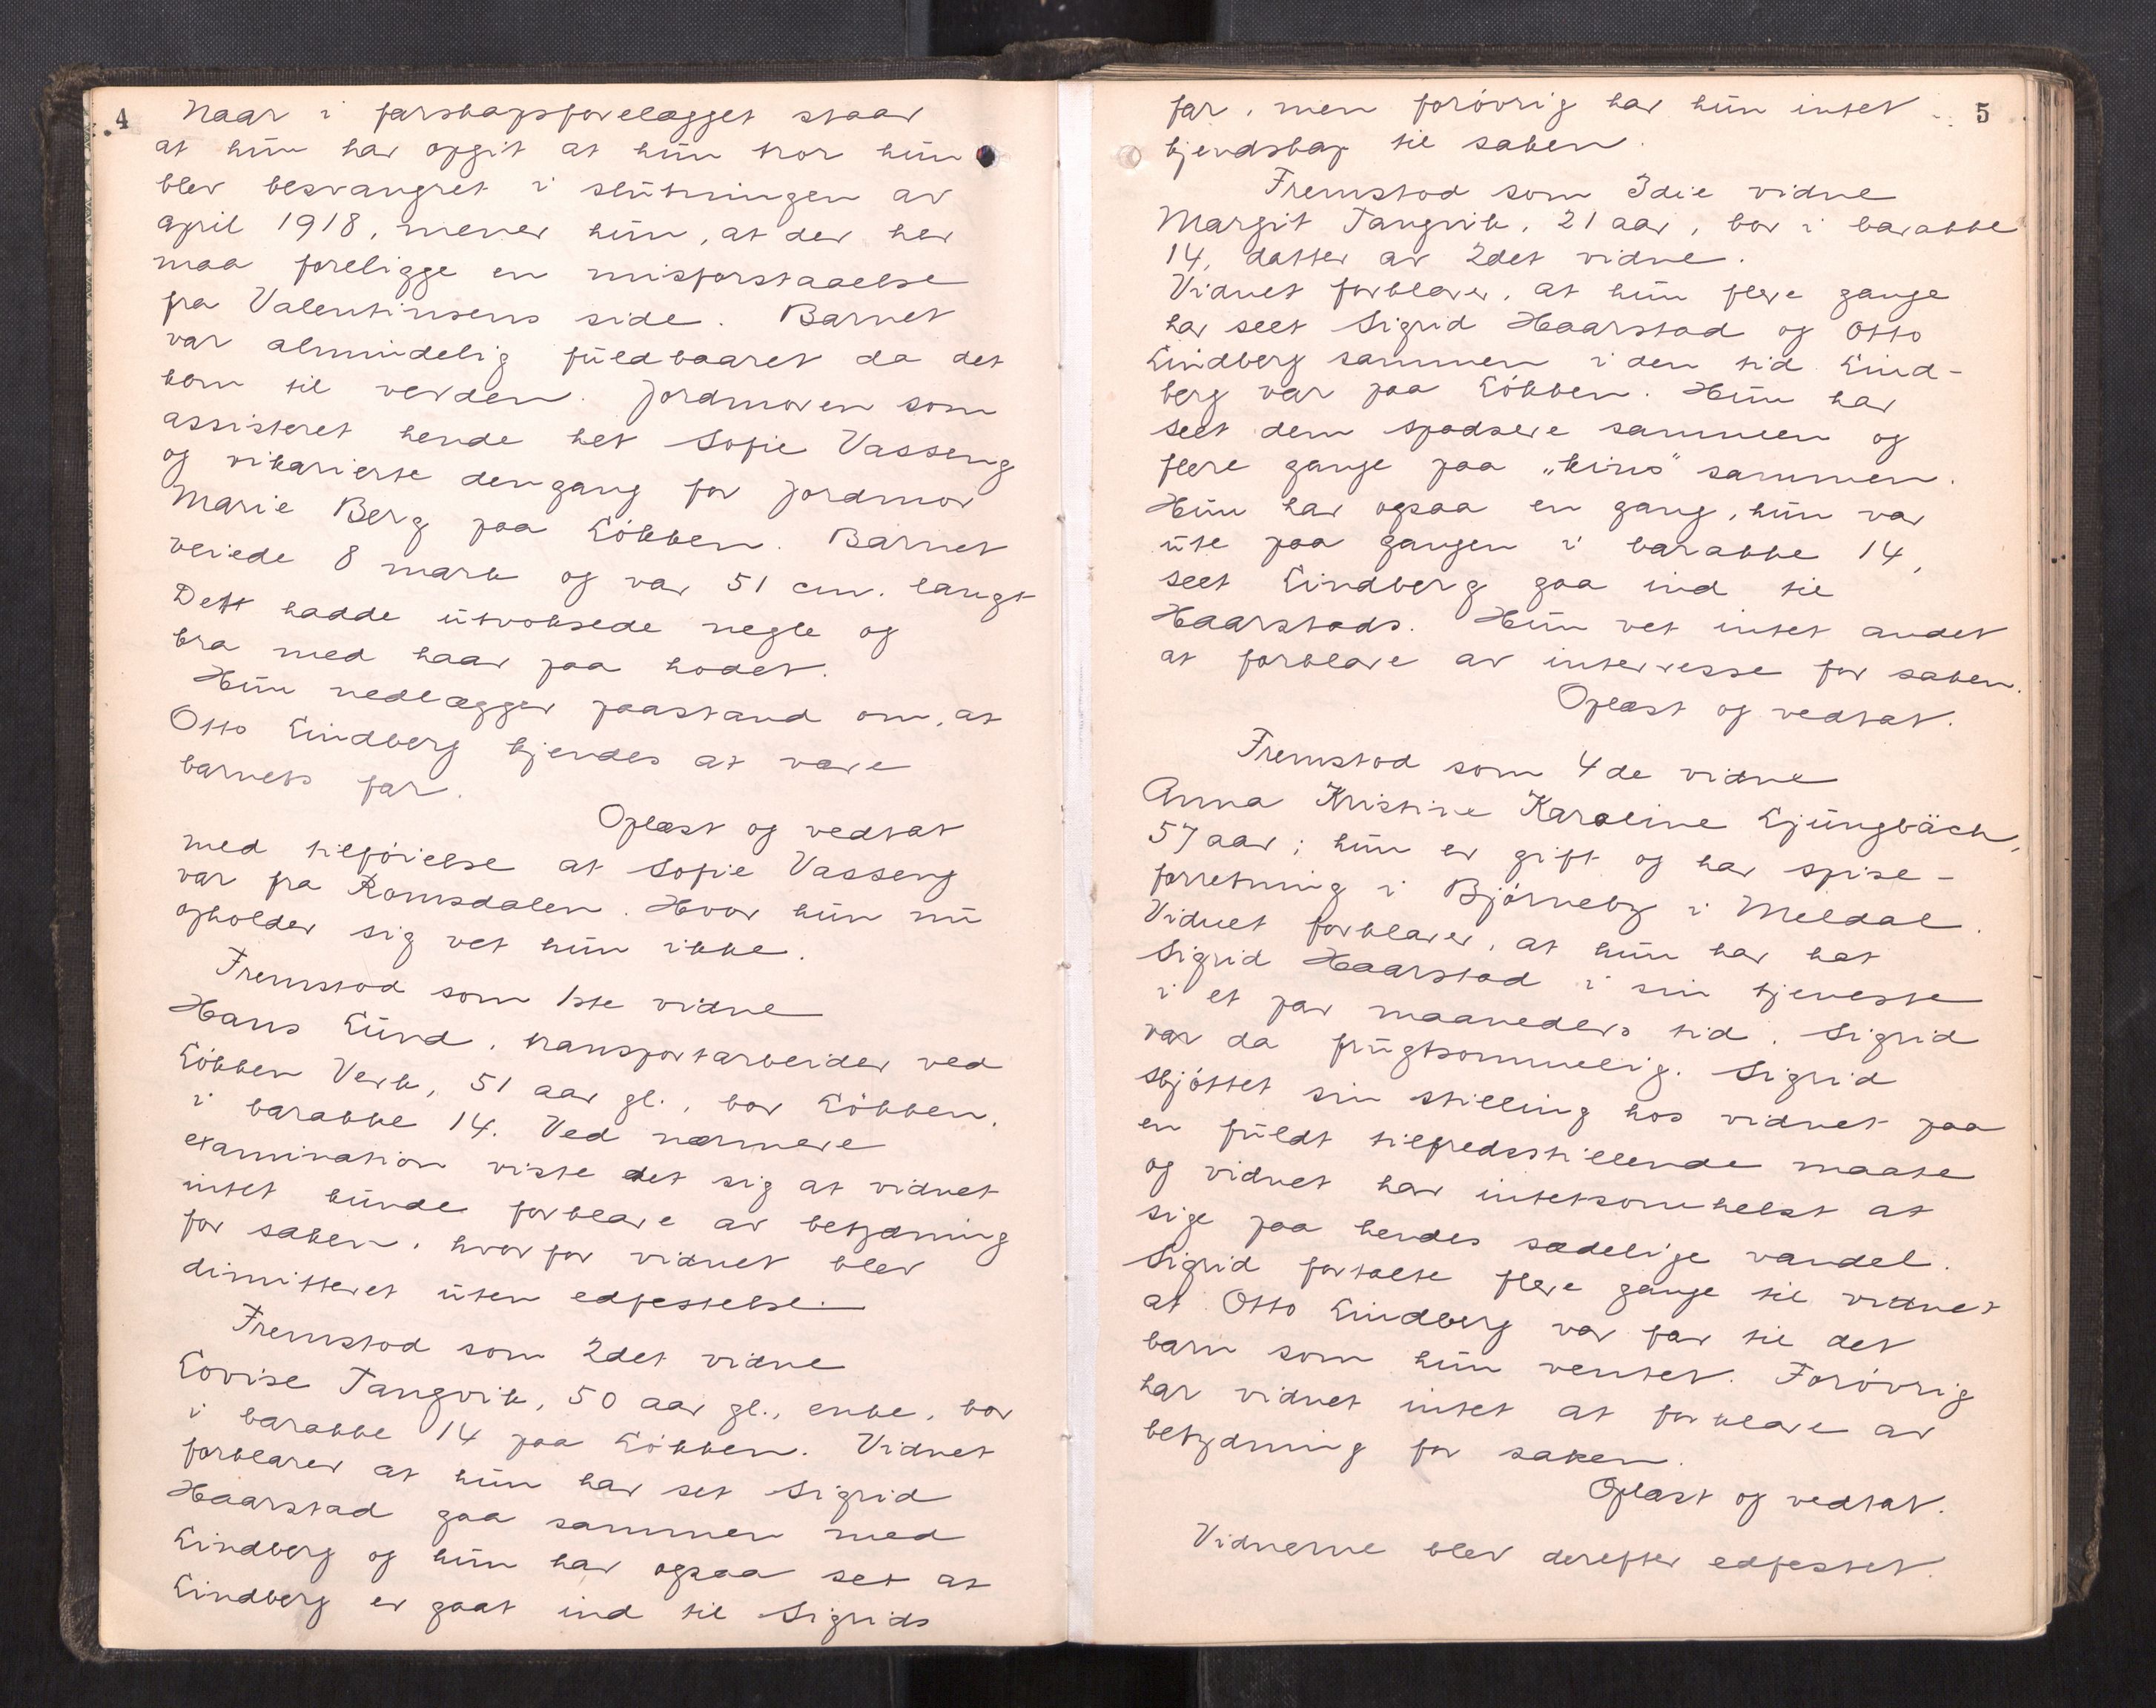 4
Naar i farskapsforelægget staar
at hun har opgit at hun tror hun
blev besvangret i slutningen av
april 1918, mener hun, at der her
maa foreligge en misforstaaelse
fra Valentinsens side. Barnet
var almindelig fuldbaaret da det
kom til verden. Jordmoren som
assisteret hende het Sofie Vasseng
og vikarierte dengang for jordmor
Marie Berg paa Løkken. Barnet
veiede 8 mark og var 51 cm. langt
Det hadde utvoksede negle og
bra med haar paa hodet.
Hun nedlægger paastand om, at
Otto Lindberg kjendes at være
barnets far.
Oplæst og vedtat
med tilføielse at Sofie Vasseng
var fra Romsdalen. Hvor hun nu
opholder sig vet hun ikke.
Fremstod som 1ste vidne
Hans Lund, transportarbeider ved
Løkken Verk, 51 aar gl., bor Løkken,
i barakke 14. Ved nærmere
examination viste det sig at vidnet
intet kunde forklare av betydning
for saken, hvorfor vidnet blev
dimitteret uten edfestelse.
Fremstod som 2det vidne
Lovise Tangvik, 50 aar gl., enke, bor
i barakke 14 paa Løkken. Vidnet
forklarer at hun har set Sigrid
Haarstad gaa sammen med
Lindberg og hun har ogsaa set at
Lindberg er gaat ind til Sigrids
5
far, men forøvrig har hun intet
kjendskap til saken.
Fremstod som 3die vidne
Margit Tangvik, 21 aar, bor i barakke
14, datter av 2det vidne.
Vidnet forklarer, at hun flere gange
har seet Sigrid Haarstad og Otto
Lindberg sammen i den tid Lind-
berg var paa Løkken. Hun har
seet dem spadsere sammen og
flere gange paa „kino“ sammen.
Hun har ogsaa en gang, hun var
ute paa gangen i barakke 14,
seet Lindberg gaa ind til
Haarstads. Hun vet intet andet
at forklare av interresse for saken.
Oplæst og vedtat.
Fremstod som 4de vidne
Anna Kristine Karoline Ljungbäck,
57 aar; hun er gift og har spise-
forretning i Bjørneby i Meldal.
Vidnet forklarer, at hun har hat
Sigrid Haarstad i sin tjeneste
i et par maaneders tid. Sigrid
var da frugtsommelig. Sigrid
skjøttet sin stilling hos vidnet paa
en fuldt tilfredsstillende maate
og vidnet har intetsomhelst at
sige paa hendes sædelige vandel.
Sigrid fortalte flere gange til vidnet
at Otto Lindberg var far til det
barn som hun ventet. Forøvrig
har vidnet intet at forklare av
betydning for saken.
Oplæst og vedtat.
Vidnerne blev derefter edfestet.